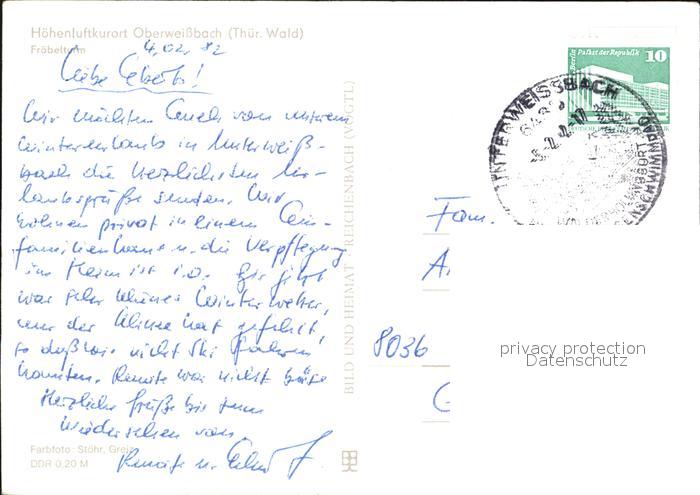 Höhenluftkurort Oberweißbach (Thür. Wald)
Fröbelturm
4.02.82
Liebe
Wir möchten Euch von unserem
Winterurlaub in Unterweiß-
bach die herzlichsten Ur-
laubsgrüße senden. Wir
wohnen privat in einem Ein-
familienhaus u. die Verpflegung
im Heim ist i.O. Bis jetzt
war sehr schönes Winterwetter,
nur der Schnee hat gefehlt,
so daß wir nicht Ski fahren
konnten. Renate war nicht böse
Herzliche Grüße bis zum
Wiedersehen von
Renate u.
Farbfoto: Stöhr, Greiz
DDR 0,20 M
BILD UND HEIMAT REICHENBACH (VOGTL)
Berlin Palast der Republik
10
UNTERWEISSBACH
Fam.
8036
privacy protection
Datenschutz